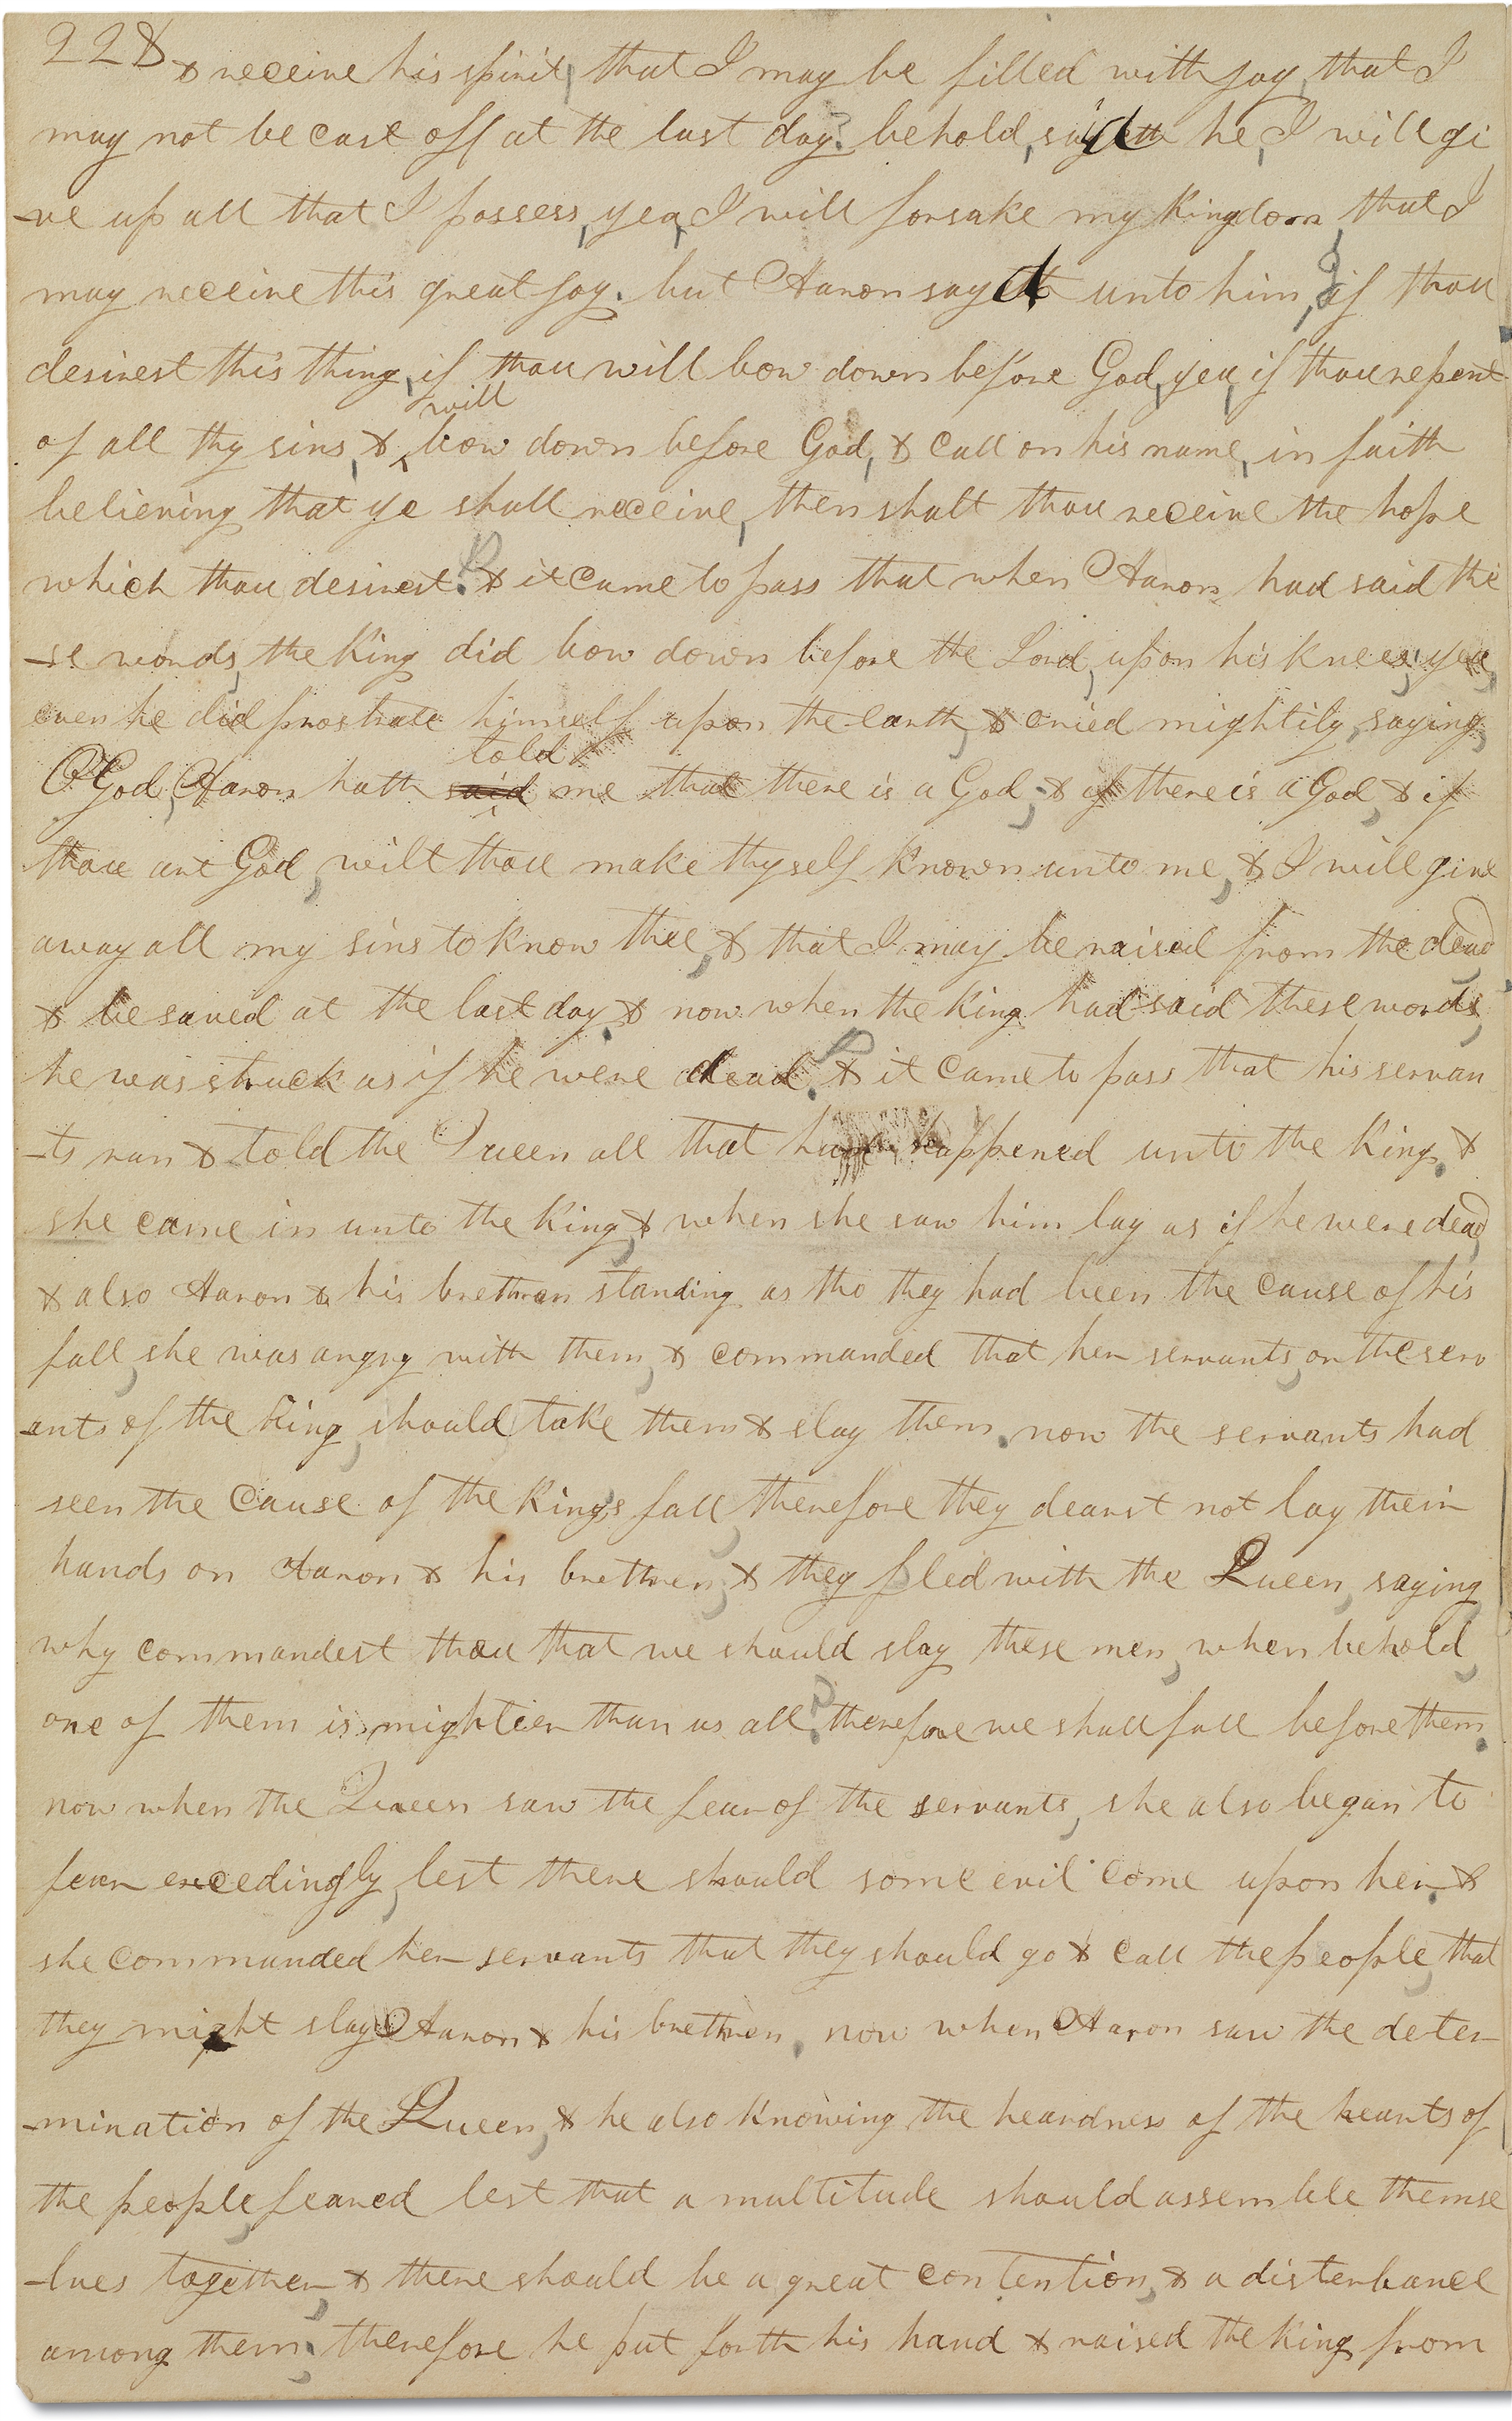 228 & receive his spirit, that I may be filled with joy, that I
may not be cast off at the last day? behold, said he, I will gi
-ve up all that I possess, yea, I will forsake my Kingdom, that I
may receive this great joy. but Aaron said unto him, if thou
desirest this thing, if thou will bow down before God, yea, if thou repent
will
of all thy sins, & bow down before God, & call on his name, in faith
believing that ye shall receive, then shalt thou receive the hope
which thou desirest. & it came to pass that when Aaron had said the
-se words, the King did bow down before the Lord, upon his knees, yea,
even he did prostrate himself upon the earth, & cried mightily, saying,
told
O God, Aaron hath said me that there is a God, & if there is a God, & if
thou art God, wilt thou make thyself known unto me, & I will give
away all my sins to know thee, & that I may be raised from the dead,
& be saved at the last day. & now when the King had said these words,
he was struck as if he were dead. & it came to pass that his servan
-ts ran & told the Queen all that had happened unto the King. &
she came in unto the King, & when she saw him lay as if he were dead,
& also Aaron & his brethren standing as tho they had been the cause of his
fall, she was angry with them, & commanded that her servants, or the serv
ants of the King, should take them & slay them. now the servants had
seen the cause of the Kings fall, therefore they dearst not lay their
hands on Aaron & his brethren, & they pled with the Queen, saying,
why commandest thou that we should slay these men, when behold,
one of them is mightier than us all? therefore we shall fall before them.
now when the Queen saw the fear of the servants, she also began to
fear excedingly, lest there should some evil come upon her. &
she commanded her servants that they should go & call the people, that
they might slay Aaron & his brethren. now when Aaron saw the deter
-mination of the Queen, & he also knowing the heardness of the hearts of
the people, feared lest that a multitude should assemble themse
-lves together, & there should be a great contention, & a disterbance
among them, therefore he put forth his hand & raised the King from